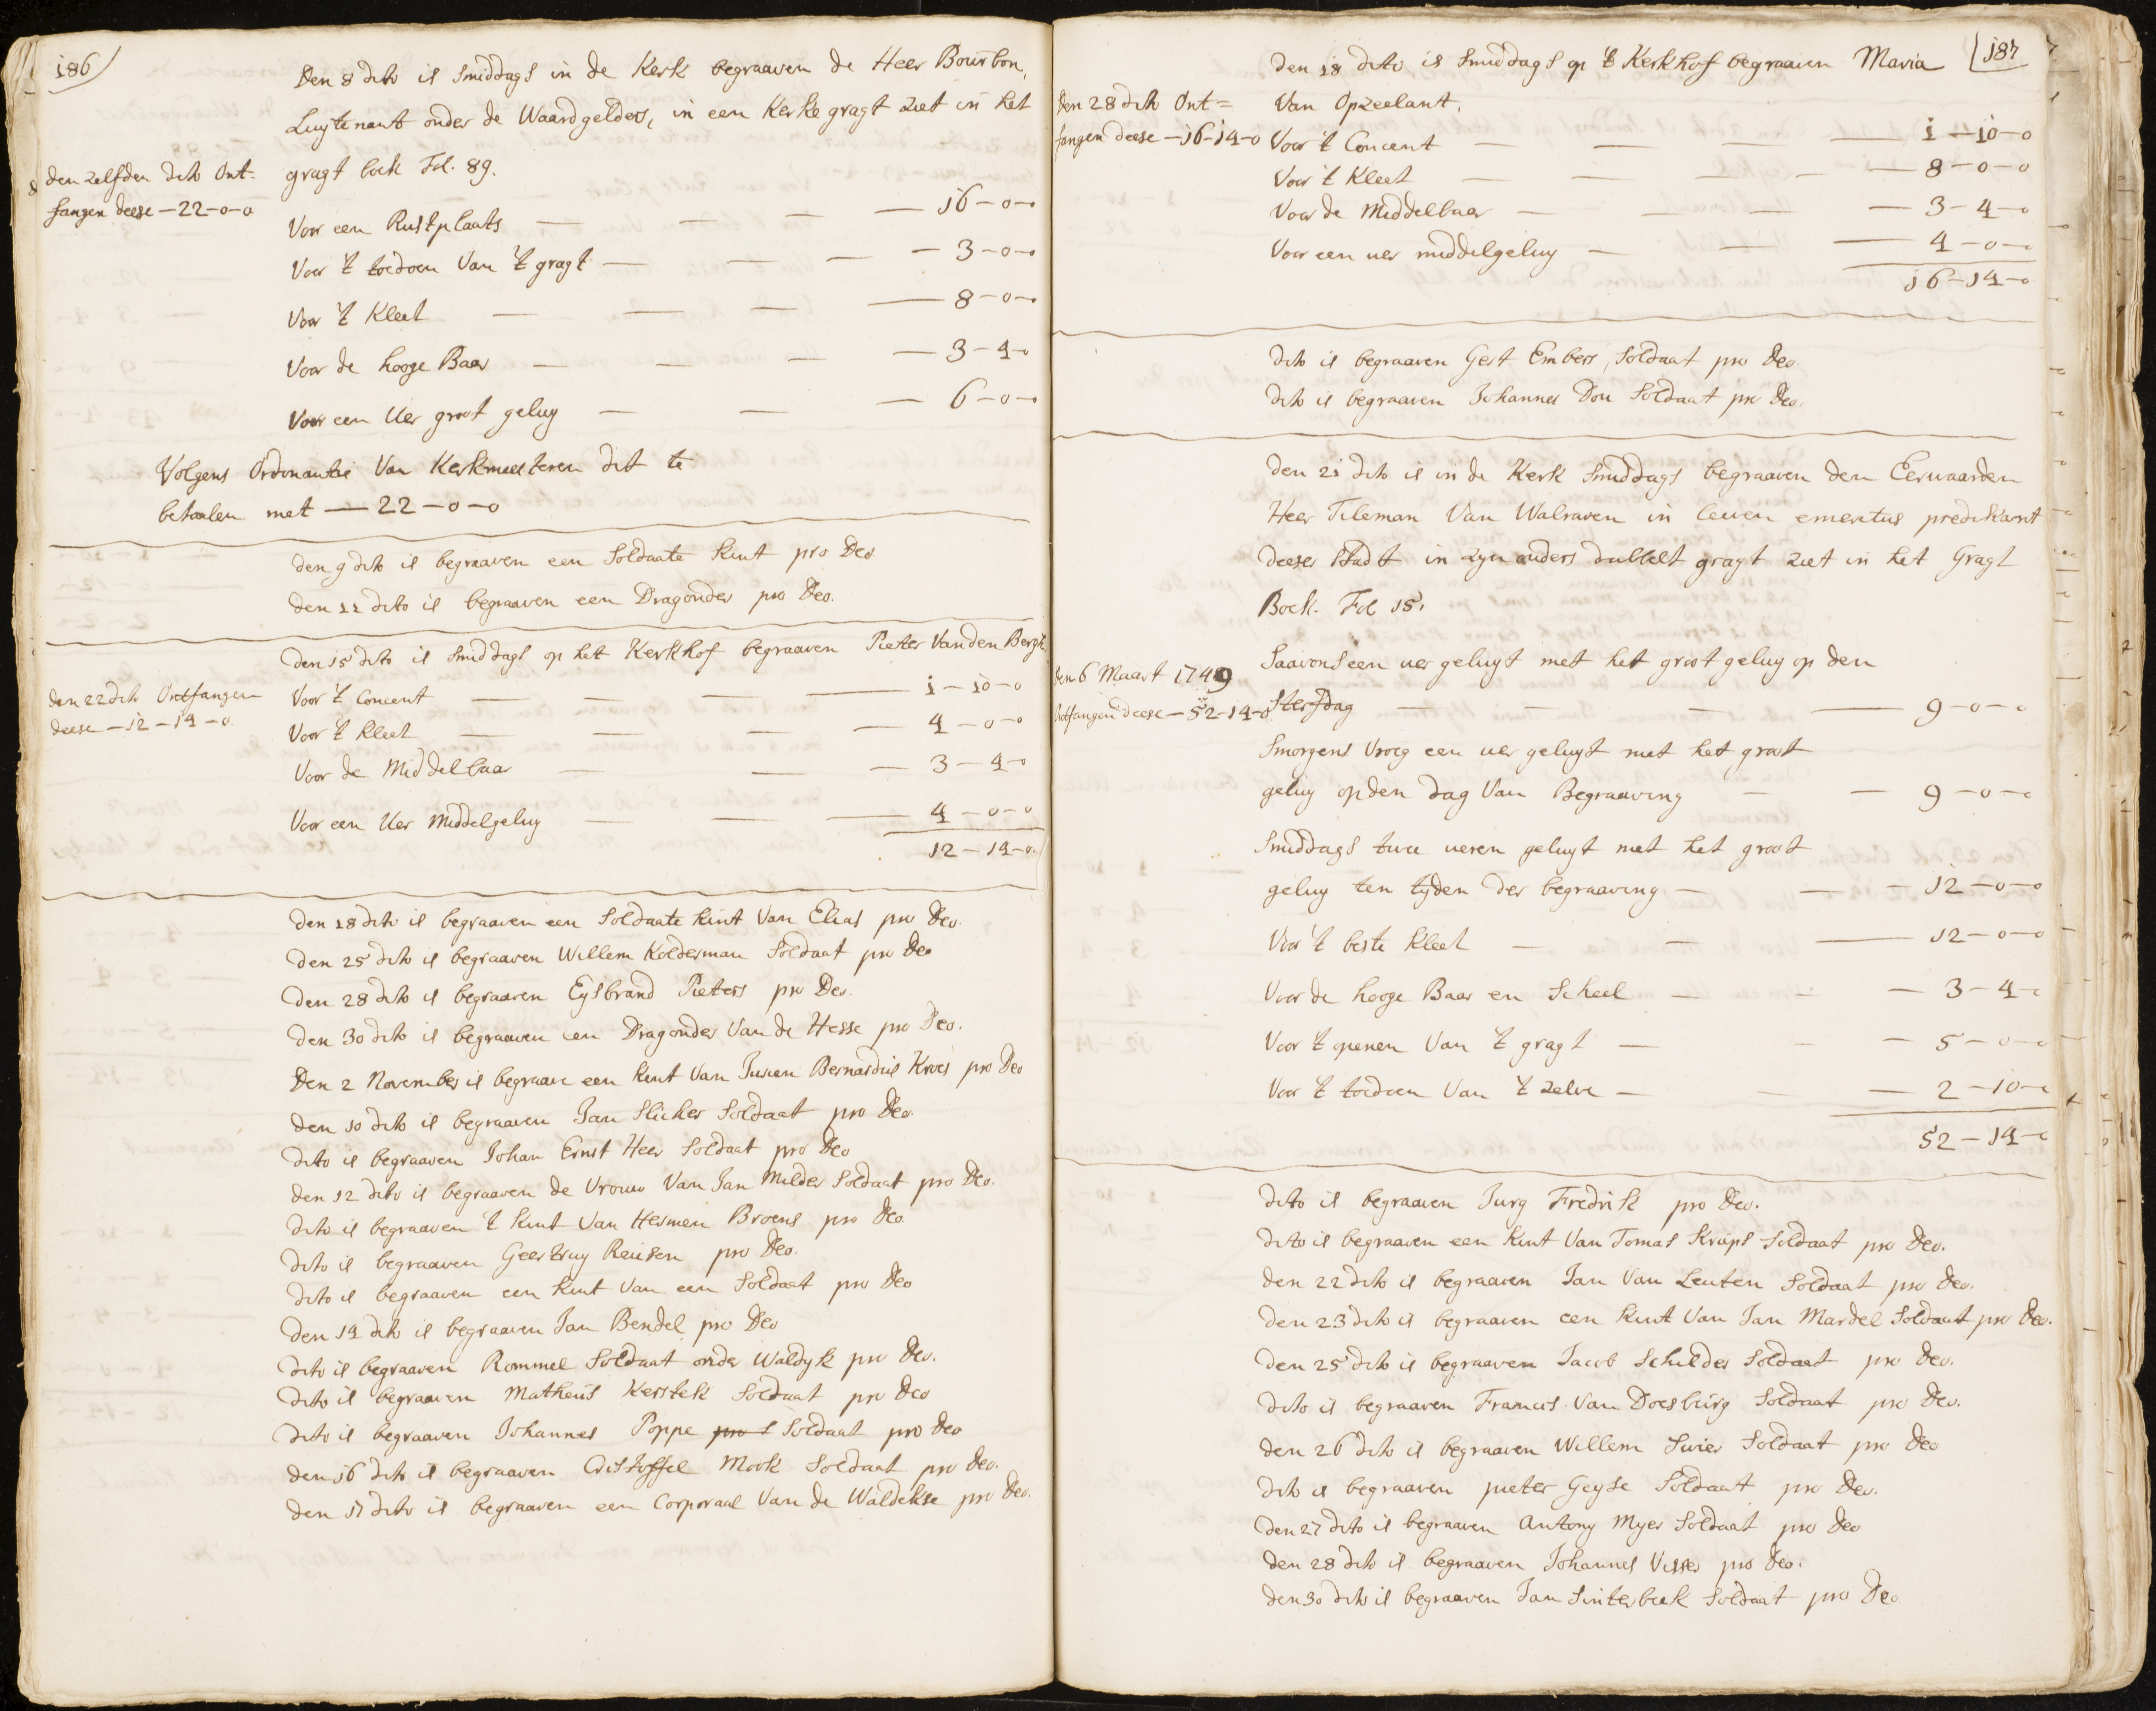 186
Den 8 dito is Smiddags in de Kerk begraaven de Heer Bourbon,
Luytenant onder de Waardgelders, in een Kerke gragt ziet in het
gragt boek Fol. 89.
den zelfden dito Ont=
fangen deese — 22-0-0
Voor een Rustplaats — 16-0-0
Voor 't toedoen Van 't gragt — 3-0-0
Voor 't Kleet — 8-0-0
Voor de hooge Baar — 3-4-0
Voor een Uer groot geluy — 6-0-0
Volgens Ordonantie Van Kerkmeesteren dit te
betaalen met — 22-0-0
den 9 dito is begraaven een Soldaate kint pro Deo
den 11 dito is begraaven een Dragonder pro Deo.
den 15 dito is Smiddags op het Kerkhof begraaven Pieter Van den Bergh
den 22 dito Ontfangen
deese — 12-14-0
Voor 't Concent — 1-10-0
Voor 't Kleet — 4-0-0
Voor de Middelbaar — 3-4-0
Voor een Uer Middelgeluy — 4-0-0
12-14-0
den 18 dito is begraaven een Soldaate kint Van Elias pro Deo.
den 25 dito is begraaven Willem Kolderman Soldaat pro Deo
den 28 dito is begraaven Eysbrand Pieters pro Deo.
den 30 dito is begraaven een Dragonder Van de Hesse pro Deo.
Den 2 November is begraave een kint Van Bernardus Kroes pro Deo
den 10 dito is begraaven Jan Slicher Soldaat pro Deo.
dito is begraaven Johan Ernst Heer Soldaat pro Deo
den 12 dito is begraaven de Vrouw Van Jan Milder Soldaat pro Deo.
dito is begraaven 't kint Van Hermen Broens pro Deo
dito is begraaven Geertruy Reusen pro Deo.
dito is begraaven een kint Van een Soldaat pro Deo
den 14 dito is begraaven Jan Bendel pro Deo
dito is begraaven Rommel Soldaat onder Waldyk pro Deo.
dito is begraaven Matheus Kerstek Soldaat pro Deo
dito is begraaven Johannes Poppe pro S Soldaat pro Deo
den 16 dito is begraaven Cristoffel Mook Soldaat pro Deo.
den 17 dito is begraaven een Corporaal Van de Waldekse pro Deo.
187
den 18 dito is Smiddags op 't Kerkhof begraaven Maria
Van Opzeelant,
den 28 dito Ont=
fangen deese — 16-14-0
Voor 't Concent — 1-10-0
Voor 't Kleet — 8-0-0
Voor de Middelbaar — 3-4-0
Voor een uer middelgeluy — 4-0-0
16-14-0
dito is begraaven Gert Embers, Soldaat pro Deo.
dito is begraaven Johannes Dou Soldaat pro Deo.
den 21 dito is in de Kerk Smiddags begraaven den Eerwaarden
Heer Tileman Van Walraven in leeven emeritus predikant
deeser Stadt in zyn ouders dubbelt gragt ziet in het Gragt
Boek. Fol 15.
Saavons een uer geluyt met het groot geluy op den
Sterfdag — 9-0-0
den 6 Maart 1749
Ontfangen deese — 52-14-0
Smorgens Vroeg een uer geluyt met het groot
geluy op den dag Van Begraaving — 9-0-0
Smiddags twee ueren geluyt met het groot
geluy ten tyden der begraaving — 12-0-0
Voor 't beste kleet — 12-0-0
Voor de hooge Baar en Scheel — 3-4-0
Voor 't openen Van 't gragt — 5-0-0
Voor 't toedoen Van 't zelve — 2-10-0
52-14-0
dito is begraaven Jurg Fredrik pro Deo.
dito is begraaven een kint Van Tomas Kraps Soldaat pro Deo.
den 22 dito is begraaven Jan Van Leuten Soldaat pro Deo.
den 23 dito is begraaven een kint Van Jan Mardel Soldaat pro Deo.
den 25 dito is begraaven Jacob Schilder Soldaat pro Deo.
dito is begraaven Francis Van Doesburg Soldaat pro Deo.
den 26 dito is begraaven Willem Swier Soldaat pro Deo
dito is begraaven pieter Geyse Soldaat pro Deo.
den 27 dito is begraaven Antony Myer Soldaat pro Deo
den 28 dito is begraaven Johannes Visser pro Deo.
den 30 dito is begraaven Jan Sinterbeek Soldaat pro Deo